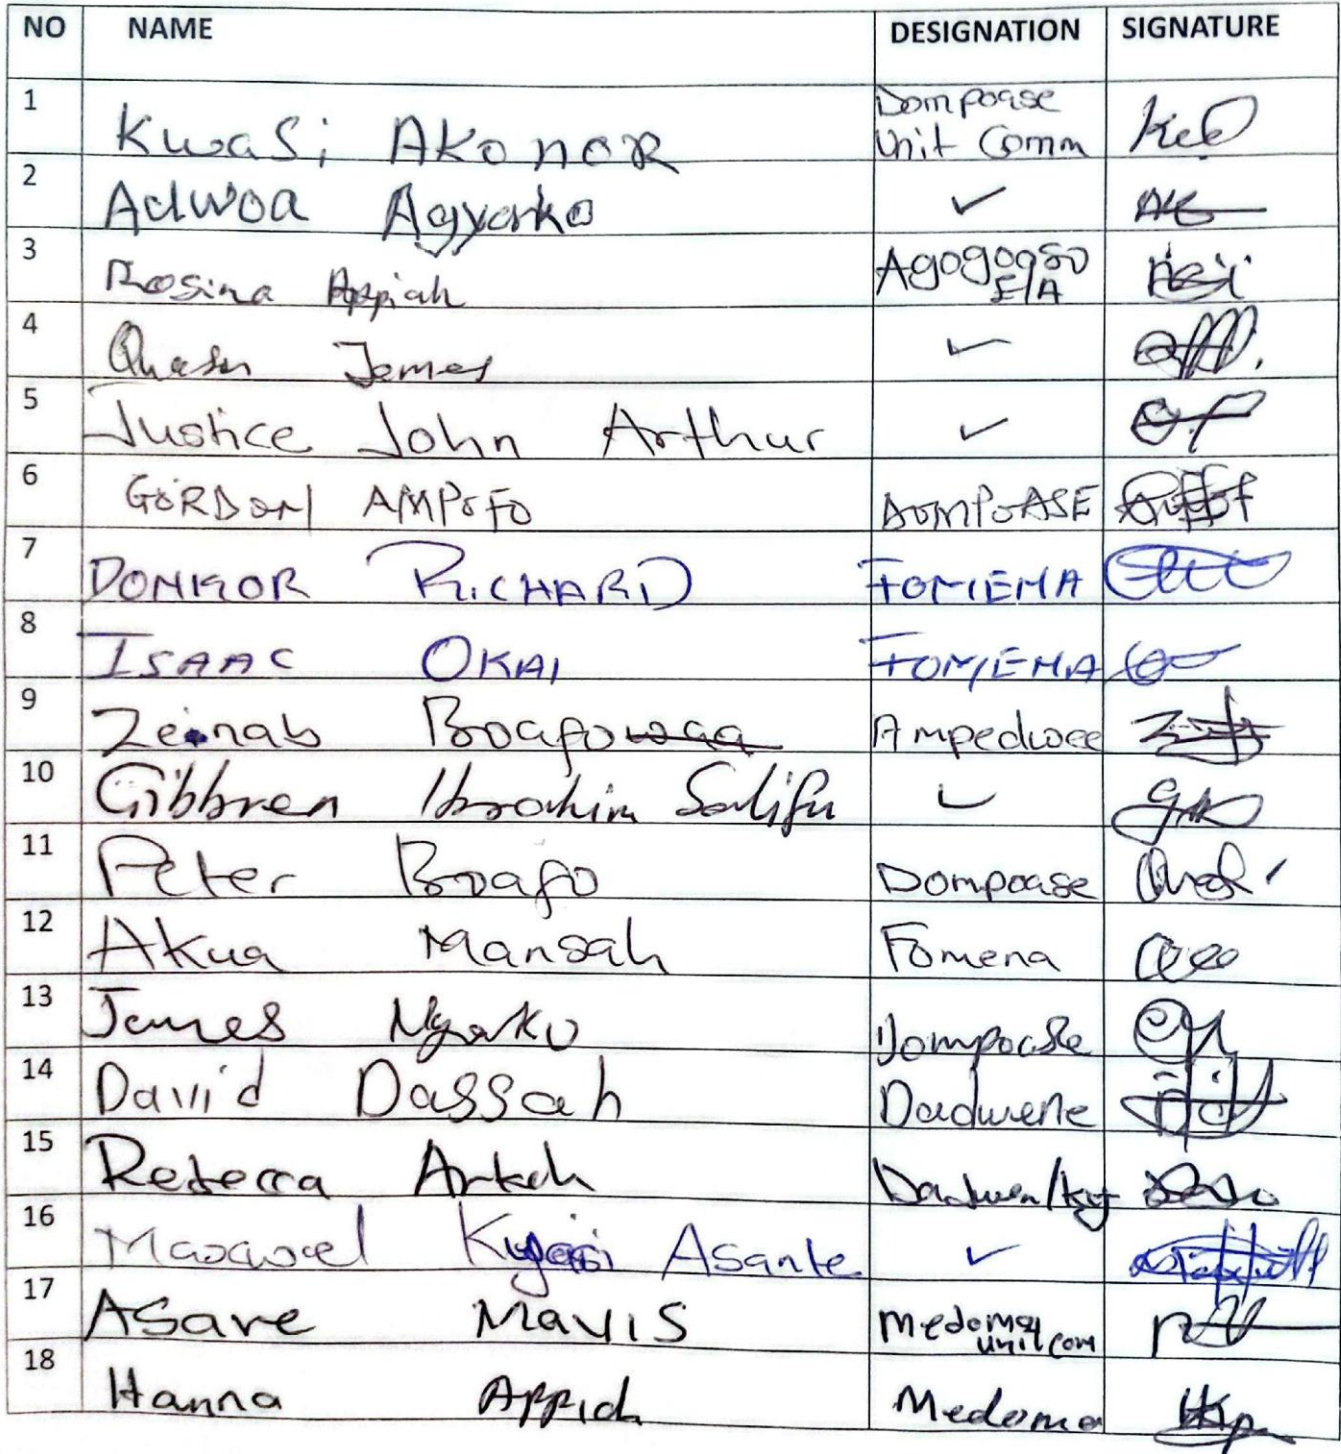 NO NAME DESIGNATION SIGNATURE
1 Kwasi Akonor Dompoase Unit Comm
2 Adwoa Agyarko ✓
3 Rosina Appiah Agogooso E/A
4 James ✓
5 Justice John Arthur ✓
6 GORDON AMPOFO DOMPOASE
7 DONKOR RICHARD FOMENA
8 ISAAC OKAI FOMENA
9 Zeinab Boafo Ampedwae
10 Gibbren Ibrahim Salifu ✓
11 Peter Boafo Dompoase
12 Akua Mansah Fomena
13 James Nyarko Dompoase
14 David Dassah Dadwene
15 Rebecca Arkoh
16 Maxwel Kyei Asante ✓
17 Asare Mavis Medoma unit com
18 Hanna Appiah Medoma